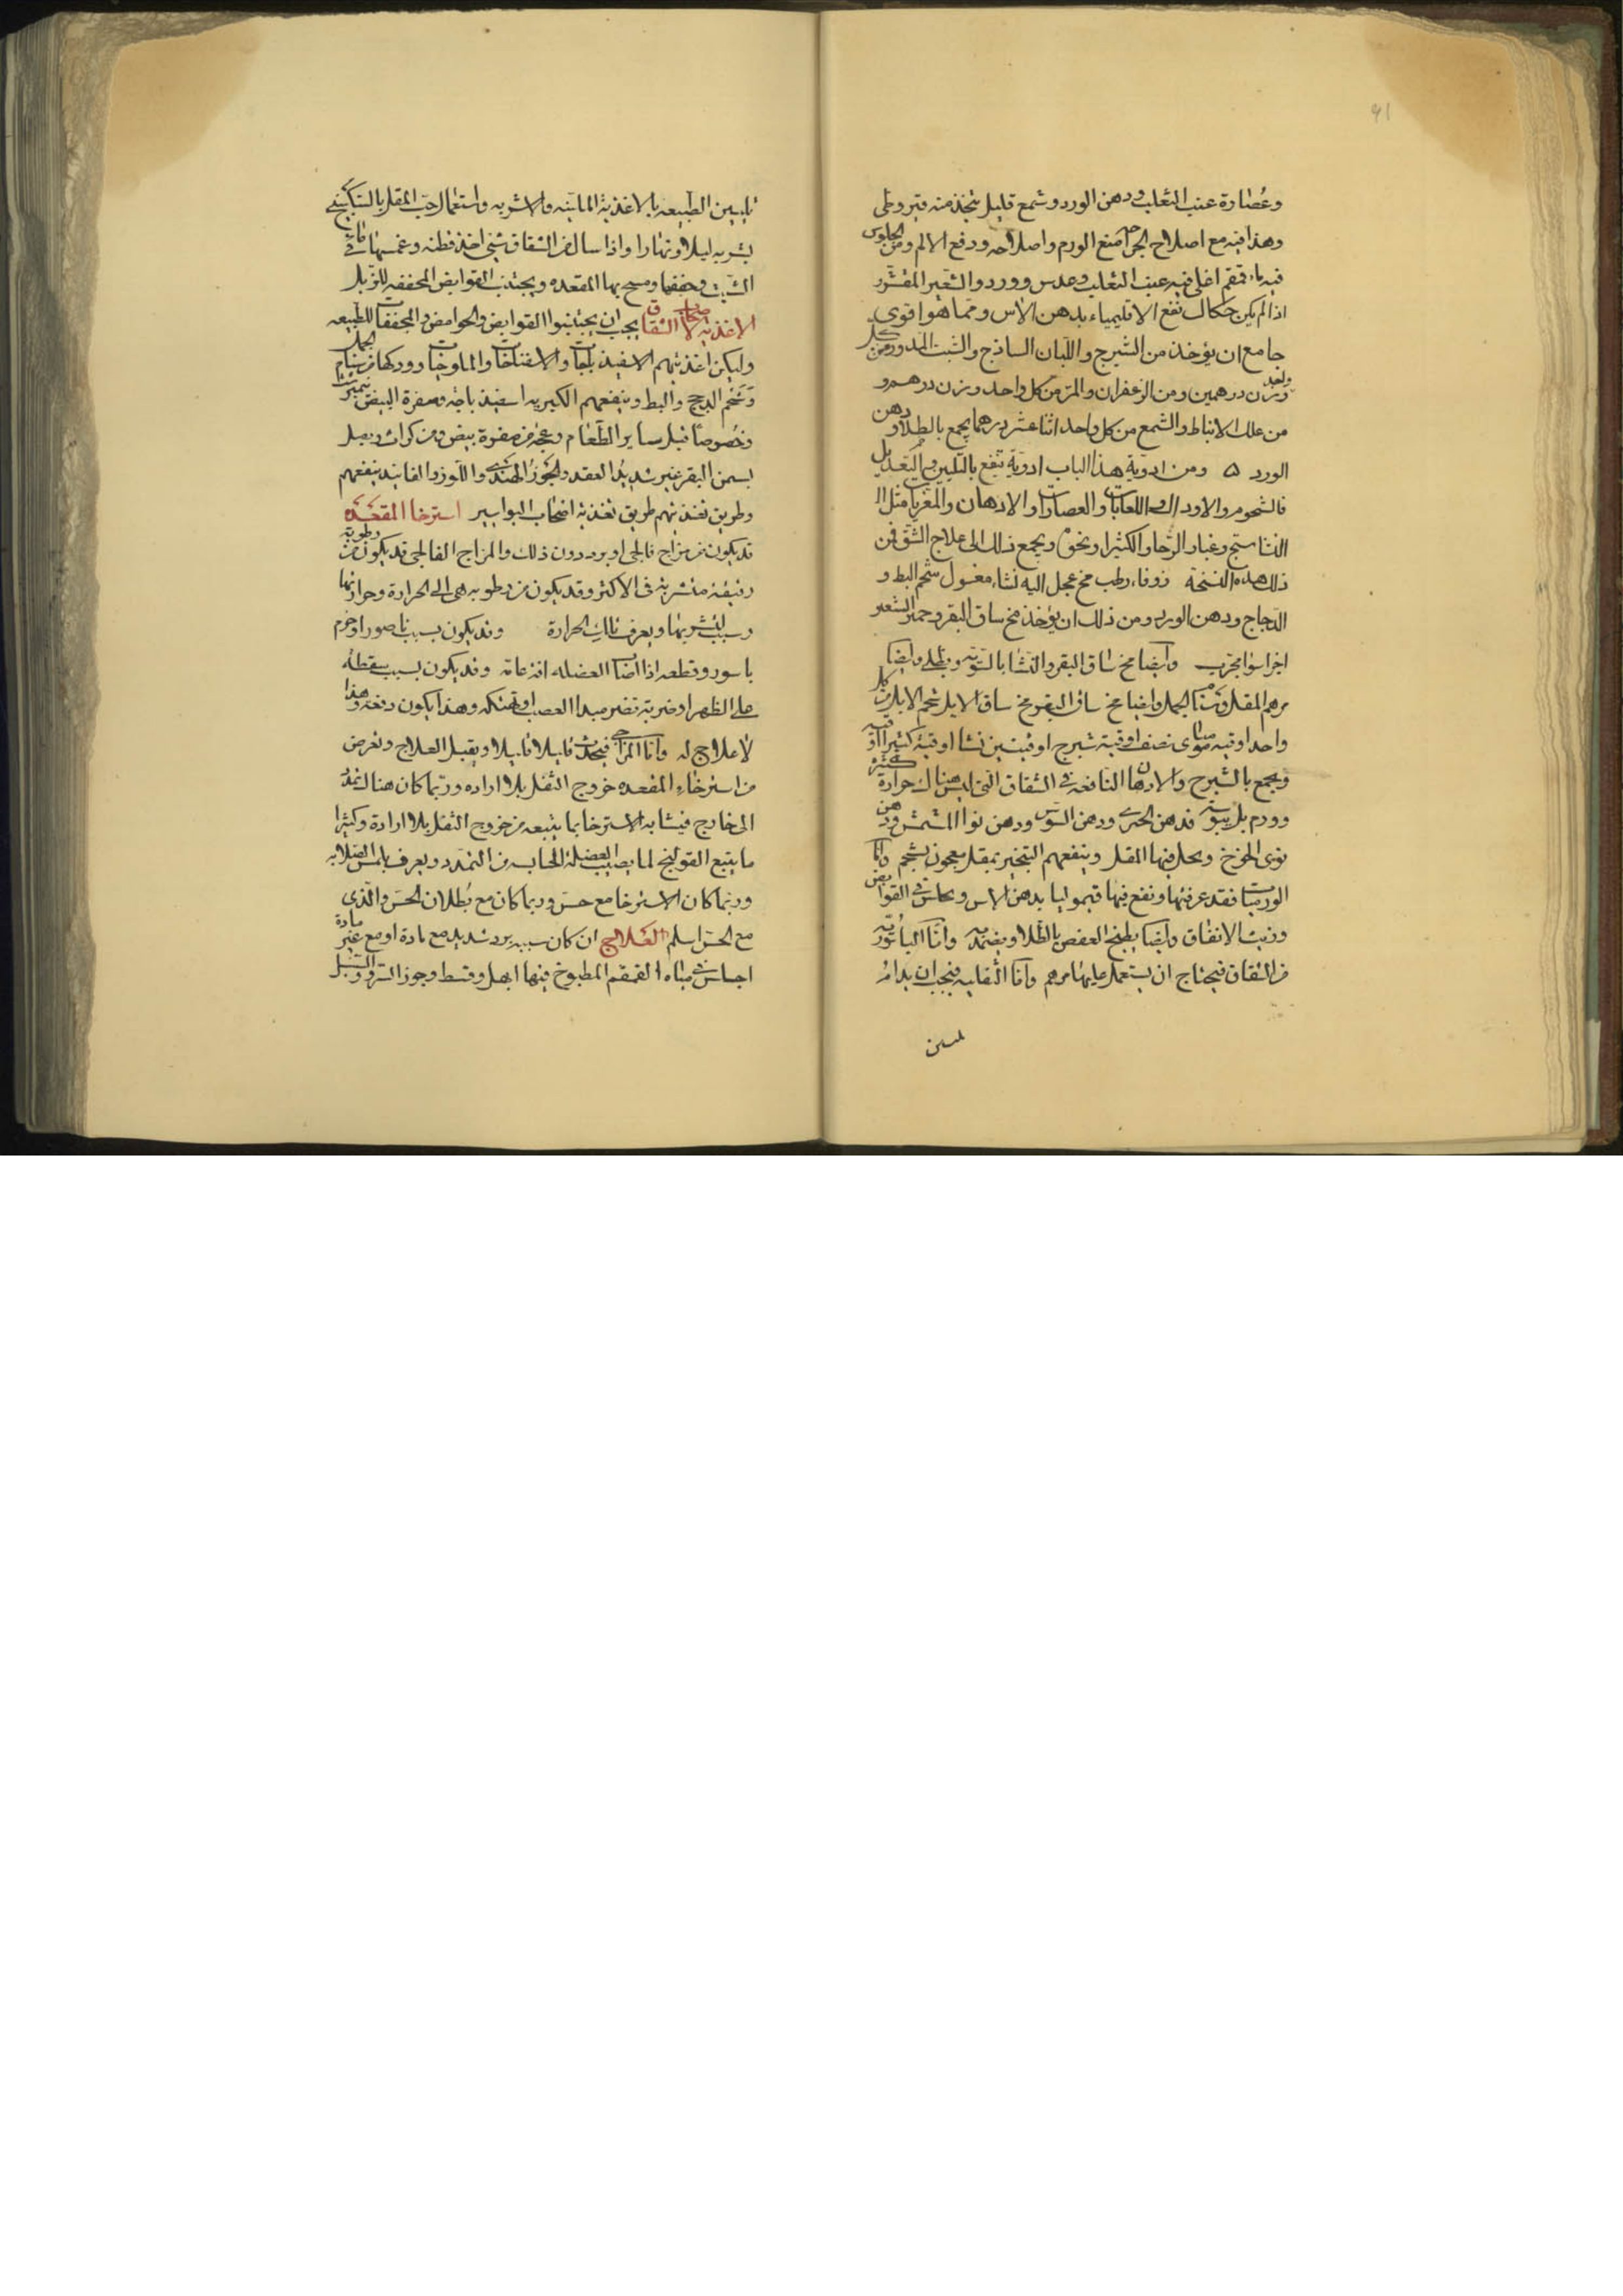 ٩١
وعصارة عنب الثعلب ودهن الورد وشمع قليل يتخذ منه قيروطى
وهذا فيه مع اصلاح الجراح منع الورم واصلاحه ودفع الالم ومن الجلوس
فيه ماء قمقم اغلى فيه عنب الثعلب وعدس وورد والشعير المقشر
اذا لم يكن حكاك نفع الاقليمياء بدهن الاس ومما هو اقوى
جامع ان يؤخذ من الشيرج واللبان الساذج والشبث المدور من كل واحد
وزن درهمين ومن الزعفران والمر من كل واحد وزن درهم و
من علك الانباط والشمع من كل واحد اثنا عشر درهما يجمع بالطلا ودهن
الورد ٥ ومن ادوية هذا الباب ادوية تنفع بالتليين والتعديل
فالشحوم والاوداك واللعابات والعصارات والادهان والمغريات مثل ا
النشاستج وغبار الرحا والكثيرا ونحوه ويجمع ذلك الى علاج الشق فمن
ذلك هذه النسخة زوفاء رطب مخ عجل اليه نشاء مغسول شحم البط و
الدجاج ودهن الورد ومن ذلك ان يؤخذ مخ ساق البقر وخمير الشعير
اجزا سوا مجرب وايضا مخ ساق البقر والنشا بالسوية ويطلى وايضا
مرهم المقل وسنام الجمل وايضا مخ ساق البقر مخ ساق الايل شحم الايل من كل
واحد اوقيه موميائى نصف اوقية شيرج اوقيتين نشا اوقية كثيرا اوقيه
ويجمع بالشيرج والادهان النافعه فى الشقاق التى ليس هناك حرارة كثيرة
وورم بل يبوسة فدهن الخيرى ودهن السوسن ودهن نوا المشمش ودهن
نوى الخوخ ويحل فيها المقل وينفعهم التبخير بمقل معجون بشحم واما
الورميات فقد عرفتها ونفع فيها قيموليا بدهن الاس ونحاس فى القوابض
وزيت الانفاق وايضا بطبخ العفص بالطلا ويضمد به واما الباسورية
من الشقاق فيحتاج ان يستعمل عليها مرهم واما الثفليه فيجب ان يدام
تليين
تليين الطبيعه بالاغذية الملينه والاشربه واستعمال حب المقل بالسكبينج
يشربه ليلا ونهارا واذا سال من الشقاق شئ اخذ قطنه وغمسها فى ماء
الشب وجففها ومسح بها المقعده ويجتنب القوابض المجففه للزبل
الاغذيه لاصحاب الشقاق يجب ان يجتنبوا القوابض والحوامض والمجففات للطبيعه
وليكن اغذيتهم الاسفيذباجات والاسفناخات والملوخيات وودكها من سنام الجمل
وشحم الدجج والبط وينفعهم الكبيريه اسفيذباجه وصفرة البيض نيمبرشت
وخصوصا قبل ساير الطعام وعجة من صفرة بيض ومن كراث وبصل
بسمن البقر غير شديد العقد والجوز الهندى واللوز والفانيد ينفعهم
وطريق تغذيتهم طريق تغذية اصحاب البواسير استرخا المقعده
قد يكون من مزاج فالجى او برد دون ذلك والمزاج الفالجى قد يكون من رطوبة
رقيقة متشربة فى الاكثر وقد يكون من رطوبه هى الى الحرارة وحرارتها
بسبب تشربها ويعرف تلك الحرارة وقد يكون بسبب ناصور او خرم
باسور وقطعه اذا اصاب العضله افة عامه وقد يكون بسبب سقطة
على الظهر او ضربة تضر مبدا العصب او تهتكه وهذا يكون دفعه وهذا
لا علاج له واما المزاجى فيحدث قليلا قليلا ويقبل العلاج وتعرض
من استرخاء المقعده خروج الثفل بلا اراده وربما كان هناك تمدد
الى خارج فيشابه الاسترخا بما يتبعه من خروج الثفل بلا ارادة وكثيرا
ما يتبع القولنج لما يصيب العضلة الحابسه من التمدد ويعرف بلمس الصلابه
وربما كان الاسترخا مع حس وربما كان مع بطلان الحس والذى
مع الحس اسلم العلاج ان كان سببه برد شديد مع مادة او مع غير مادة
اجلس فى مياه القمقم المطبوخ فيها ابهل وقسط وجوز السرو والسنبل